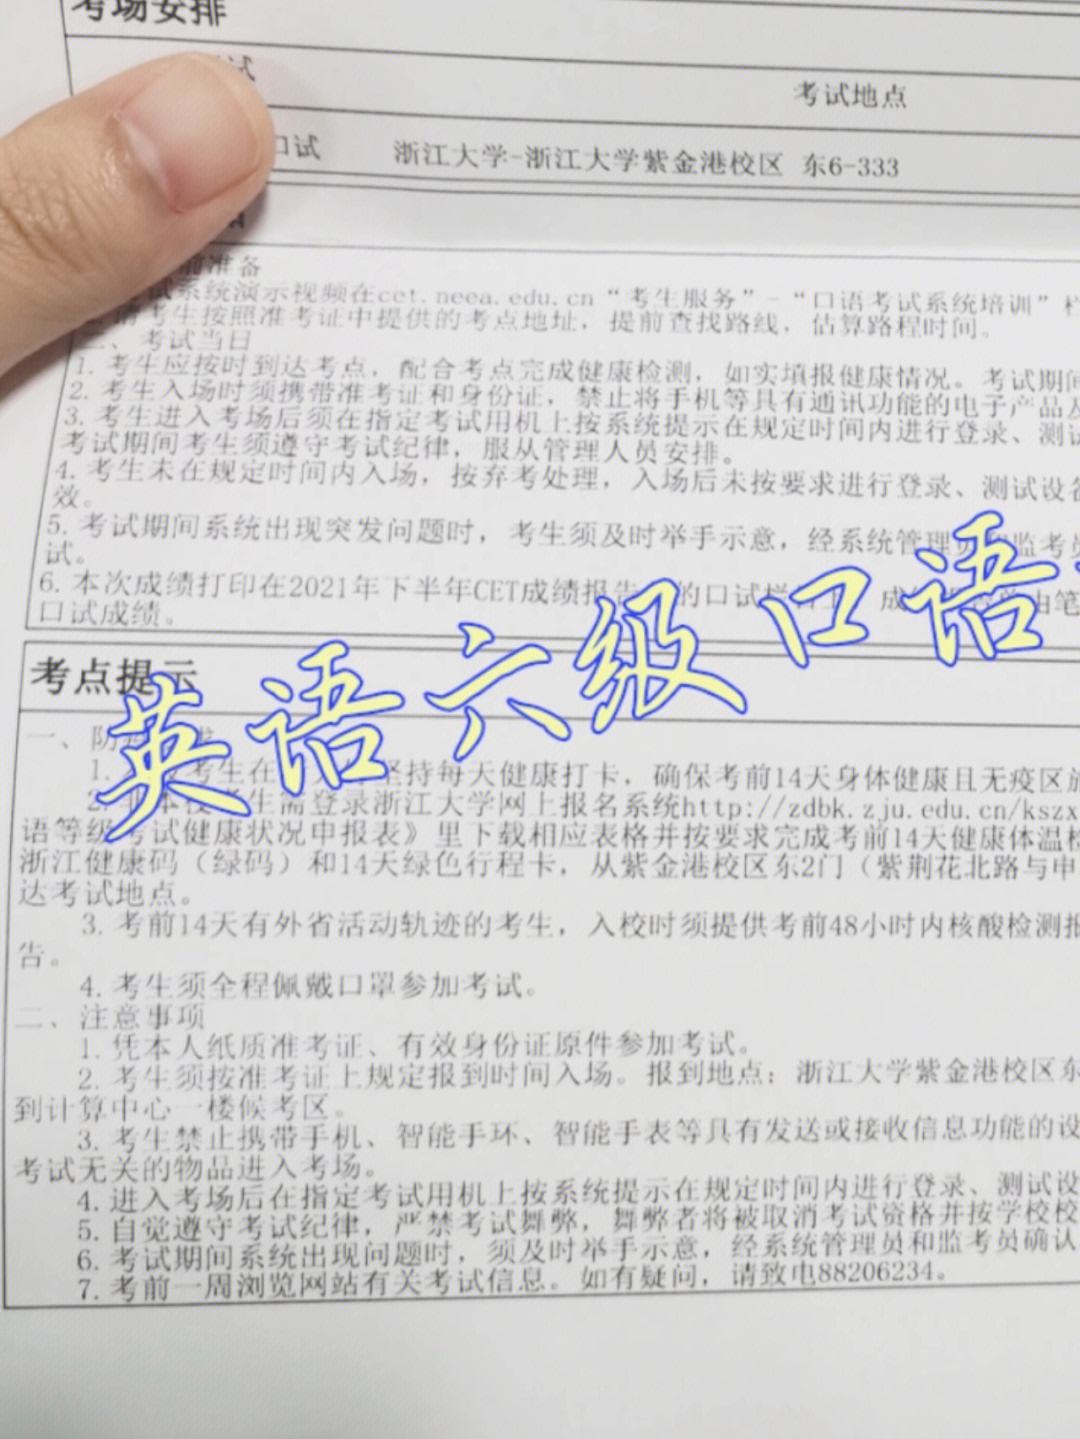 考场安排
试
考试地点
口试 浙江大学-浙江大学紫金港校区 东6-333
前准备
试系统演示视频在cet.neea.edu.cn“考生服务”-“口语考试系统培训”栏
请考生按照准考证中提供的考点地址，提前查找路线，估算路程时间。
二、考试当日
1. 考生应按时到达考点，配合考点完成健康检测，如实填报健康情况。考试期间
2. 考生入场时须携带准考证和身份证，禁止将手机等具有通讯功能的电子产品及
3. 考生进入考场后须在指定考试用机上按系统提示在规定时间内进行登录、测试
考试期间考生须遵守考试纪律，服从管理人员安排。
4. 考生未在规定时间内入场，按弃考处理，入场后未按要求进行登录、测试设备
效。
5. 考试期间系统出现突发问题时，考生须及时举手示意，经系统管理员和监考员
试。
6. 本次成绩打印在2021年下半年CET成绩报告 的口试栏目上 成 由笔
口试成绩。
英语六级口语
考点提示
一、防
1. 考生在 坚持每天健康打卡，确保考前14天身体健康且无疫区旅
2. 非本校考生需登录浙江大学网上报名系统http://zdbk.zju.edu.cn/kszx
语等级考试健康状况申报表》里下载相应表格并按要求完成考前14天健康体温检
浙江健康码（绿码）和14天绿色行程卡，从紫金港校区东2门（紫荆花北路与申
达考试地点。
3. 考前14天有外省活动轨迹的考生，入校时须提供考前48小时内核酸检测报
告。
4. 考生须全程佩戴口罩参加考试。
二、注意事项
1. 凭本人纸质准考证、有效身份证原件参加考试。
2. 考生须按准考证上规定报到时间入场。报到地点：浙江大学紫金港校区东
到计算中心一楼候考区。
3. 考生禁止携带手机、智能手环、智能手表等具有发送或接收信息功能的设
考试无关的物品进入考场。
4. 进入考场后在指定考试用机上按系统提示在规定时间内进行登录、测试设
5. 自觉遵守考试纪律，严禁考试舞弊，舞弊者将被取消考试资格并按学校校
6. 考试期间系统出现问题时，须及时举手示意，经系统管理员和监考员确认
7. 考前一周浏览网站有关考试信息。如有疑问，请致电88206234。